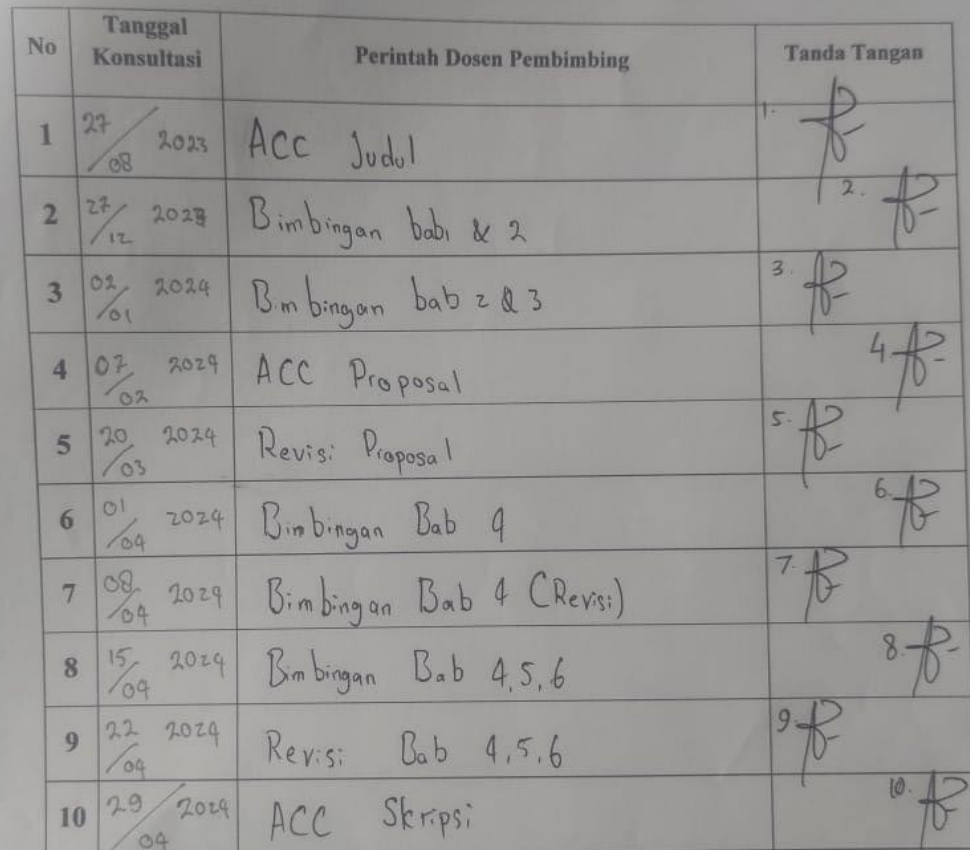 No Tanggal Konsultasi Perintah Dosen Pembimbing Tanda Tangan
1 27/08 2023 ACC Judul 1.
2 27/12 2023 Bimbingan bab 1 & 2 2.
3 02/01 2024 Bimbingan bab 2 & 3 3.
4 07/02 2024 ACC Proposal 4
5 20/03 2024 Revisi Proposal 5.
6 01/04 2024 Bimbingan Bab 4 6.
7 08/04 2024 Bimbingan Bab 4 (Revisi) 7.
8 15/04 2024 Bimbingan Bab 4, 5, 6 8.
9 22/04 2024 Revisi Bab 4, 5, 6 9.
10 29/04 2024 ACC Skripsi 10.